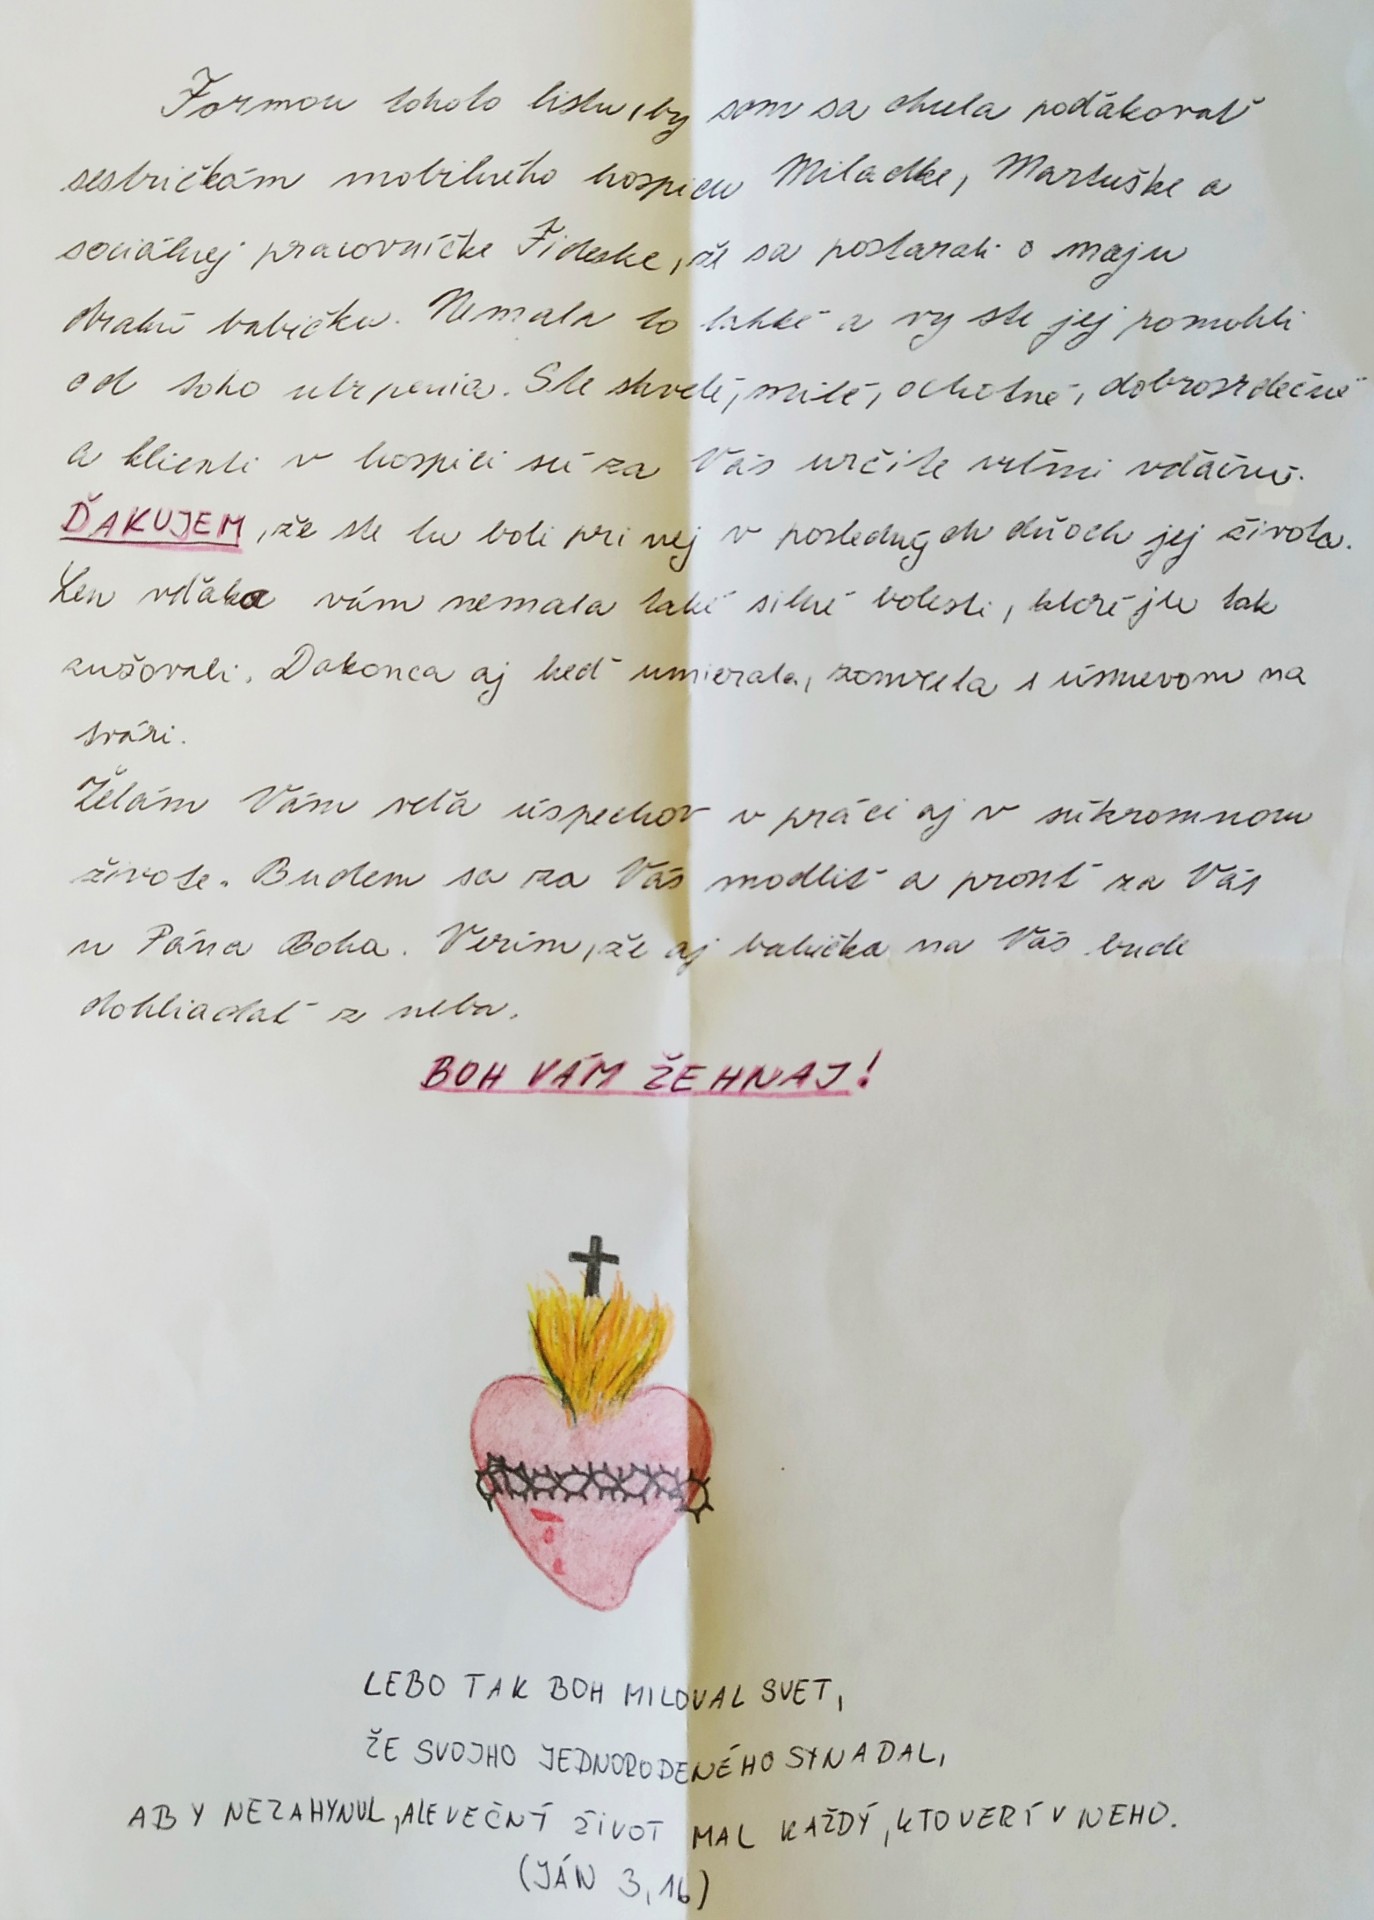 Formou tohoto listu, by som sa chcela poďakovať
sestričkám mobilného hospicu Miladke, Martuške a
sociálnej pracovníčke Fideske, že sa postarali o moju
drahú babičku. Nemala to ľahké a vy ste jej pomohli
od toho utrpenia. Ste skvelé, milé, ochotné, dobrosrdečné
a klienti v hospici sú za Vás určite veľmi vďační.
ĎAKUJEM, že ste tu boli pri nej v posledných dňoch jej života.
Len vďaka vám nemala také silné bolesti, ktoré ju tak
sužovali. Dokonca aj keď umierala, zomrela s úsmevom na
tvári.
Želám Vám veľa úspechov v práci aj v súkromnom
živote. Budem sa za Vás modliť a prosiť za Vás
u Pána Boha. Verím, že aj babička na Vás bude
dohliadať z neba.
BOH VÁM ŽEHNAJ!
LEBO TAK BOH MILOVAL SVET,
ŽE SVOJHO JEDNORODENÉHO SYNA DAL,
ABY NEZAHYNUL, ALE VEČNÝ ŽIVOT MAL KAŽDÝ, KTO VERÍ V NEHO.
(JÁN 3, 16)